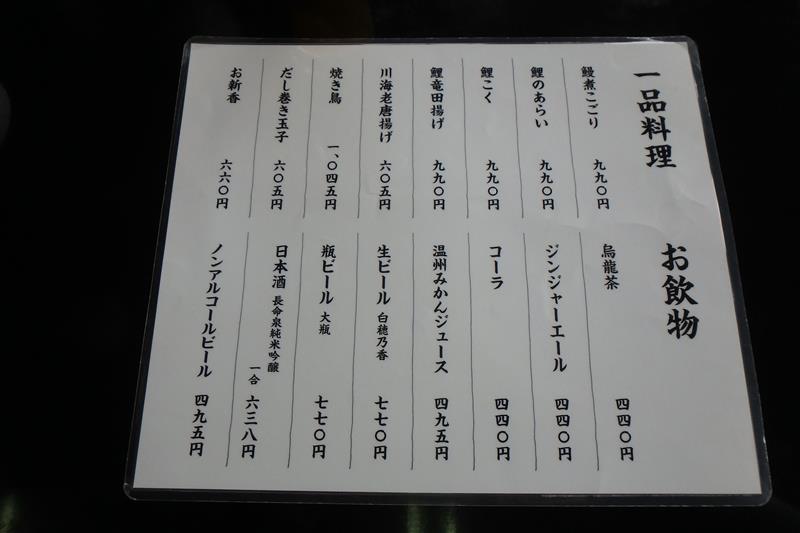 一品料理
鰻煮こごり 九九〇円
鯉のあらい 九九〇円
鯉こく 九九〇円
鯉竜田揚げ 九九〇円
川海老唐揚げ 六〇五円
焼き鳥 一、〇四五円
だし巻き玉子 六〇五円
お新香 六六〇円
お飲物
烏龍茶 四四〇円
ジンジャーエール 四四〇円
コーラ 四四〇円
温州みかんジュース 四九五円
生ビール 白穂乃香 七七〇円
瓶ビール 大瓶 七七〇円
日本酒 長命泉純米吟醸 一合 六三八円
ノンアルコールビール 四九五円